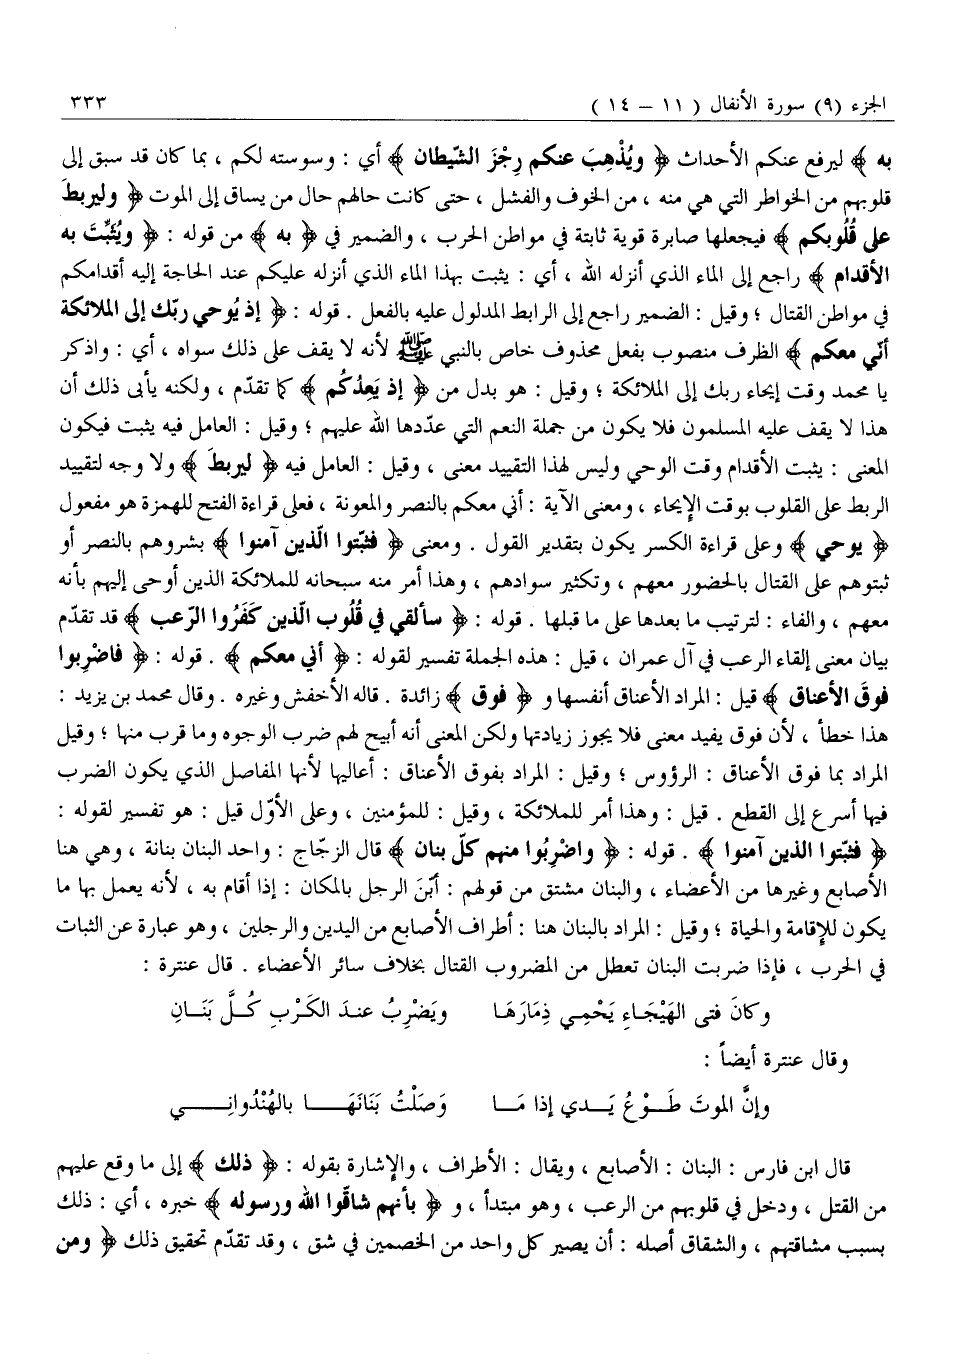 الجزء (٩) سورة الأنفال ( ١١ – ١٤ ) ٣٣٣
به ﴾ ليرفع عنكم الأحداث ﴿ ويُذْهِبَ عنكم رِجْزَ الشّيطان ﴾ أي : وسوسته لكم ، بما كان قد سبق إلى
قلوبهم من الخواطر التي هي منه ، من الخوف والفشل ، حتى كانت حالهم حال من يساق إلى الموت ﴿ وليربطَ
على قُلُوبكم ﴾ فيجعلها صابرة قوية ثابتة في مواطن الحرب ، والضمير في ﴿ به ﴾ من قوله : ﴿ ويُثَبِّتَ به
الأقدام ﴾ راجع إلى الماء الذي أنزله الله ، أي : يثبت بهذا الماء الذي أنزله عليكم عند الحاجة إليه أقدامكم
في مواطن القتال ؛ وقيل : الضمير راجع إلى الرابط المدلول عليه بالفعل . قوله : ﴿ إذ يُوحي ربّك إلى الملائكة
أنّي معكم ﴾ الظرف منصوب بفعل محذوف خاص بالنبي ﷺ لأنه لا يقف على ذلك سواه ، أي : واذكر
يا محمد وقت إيحاء ربك إلى الملائكة ؛ وقيل : هو بدل من ﴿ إذ يَعِدُكُم ﴾ كما تقدّم ، ولكنه يأبى ذلك أن
هذا لا يقف عليه المسلمون فلا يكون من جملة النعم التي عدّدها الله عليهم ؛ وقيل : العامل فيه يثبت فيكون
المعنى : يثبت الأقدام وقت الوحي وليس لهذا التقييد معنى ، وقيل : العامل فيه ﴿ ليربطَ ﴾ ولا وجه لتقييد
الربط على القلوب بوقت الإيحاء ، ومعنى الآية : أني معكم بالنصر والمعونة ، فعلى قراءة الفتح للهمزة هو مفعول
﴿ يوحي ﴾ وعلى قراءة الكسر يكون بتقدير القول . ومعنى ﴿ فثبّتوا الّذين آمنوا ﴾ بشروهم بالنصر أو
ثبتوهم على القتال بالحضور معهم ، وتكثير سوادهم ، وهذا أمر منه سبحانه للملائكة الذين أوحى إليهم بأنه
معهم ، والفاء : لترتيب ما بعدها على ما قبلها . قوله : ﴿ سألقي في قُلُوب الّذين كَفَرُوا الرّعب ﴾ قد تقدّم
بيان معنى إلقاء الرعب في آل عمران ، قيل : هذه الجملة تفسير لقوله : ﴿ أني معكم ﴾ . قوله : ﴿ فاضْرِبوا
فوقَ الأعناق ﴾ قيل : المراد الأعناق أنفسها و ﴿ فوق ﴾ زائدة . قاله الأخفش وغيره . وقال محمد بن يزيد :
هذا خطأ ، لأن فوق يفيد معنى فلا يجوز زيادتها ولكن المعنى أنه أبيح لهم ضرب الوجوه وما قرب منها ؛ وقيل
المراد بما فوق الأعناق : الرؤوس ؛ وقيل : المراد بفوق الأعناق : أعاليها لأنها المفاصل الذي يكون الضرب
فيها أسرع إلى القطع . قيل : وهذا أمر للملائكة ، وقيل : للمؤمنين ، وعلى الأوّل قيل : هو تفسير لقوله :
﴿ فثبّتوا الذين آمنوا ﴾ . قوله : ﴿ واضْرِبُوا منهم كلّ بنان ﴾ قال الزجّاج : واحد البنان بنانة ، وهي هنا
الأصابع وغيرها من الأعضاء ، والبنان مشتق من قولهم : أبَنَ الرجل بالمكان : إذا أقام به ، لأنه يعمل بها ما
يكون للإقامة والحياة ؛ وقيل : المراد بالبنان هنا : أطراف الأصابع من اليدين والرجلين ، وهو عبارة عن الثبات
في الحرب ، فإذا ضربت البنان تعطل من المضروب القتال بخلاف سائر الأعضاء . قال عنترة :
وكانَ فتى الهَيْجَاءِ يَحْمِي ذِمَارَهَا ويَضْرِبُ عندَ الكَرْبِ كُلَّ بَنَانِ
وقال عنترة أيضاً :
وإنَّ الموتَ طَوْعُ يَدي إذا مَا وَصَلْتُ بَنَانَهَا بالهُنْدُواني
قال ابن فارس : البنان : الأصابع ، ويقال : الأطراف ، والإشارة بقوله : ﴿ ذلك ﴾ إلى ما وقع عليهم
من القتل ، ودخل في قلوبهم من الرعب ، وهو مبتدأ ، و ﴿ بأنهم شاقّوا الله ورسوله ﴾ خبره ، أي : ذلك
بسبب مشاقتهم ، والشقاق أصله : أن يصير كل واحد من الخصمين في شق ، وقد تقدّم تحقيق ذلك ﴿ ومن